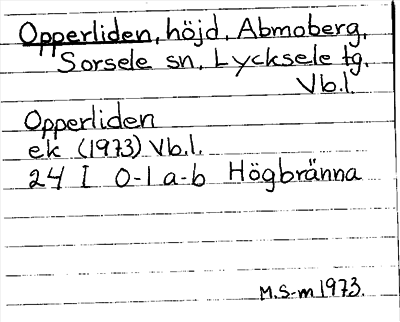 Opperliden, höjd, Abmoberg,
Sorsele sn, Lycksele tg.
Vb.l.
Opperliden
ek (1973) Vb.l.
24 I 0-1 a-b Högbränna
M.S-m 1973.